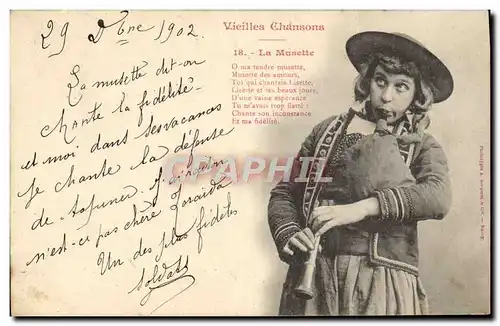 29 Dbre 1902.
La musette dit-on
chante la fidélité
et moi dans ses vacances
je chante la défense
de
n'est-ci pas chère Zoraïda
Un des plus fidèles
soldats
Vieilles Chansons
18. - La Musette
O ma tendre musette,
Musette des amours,
Toi qui chantais Lisette,
Lisette et les beaux jours,
D'une vaine espérance
Tu m'avais trop flatté :
Chante son inconstance
Et ma fidélité.
CPA-PHIL